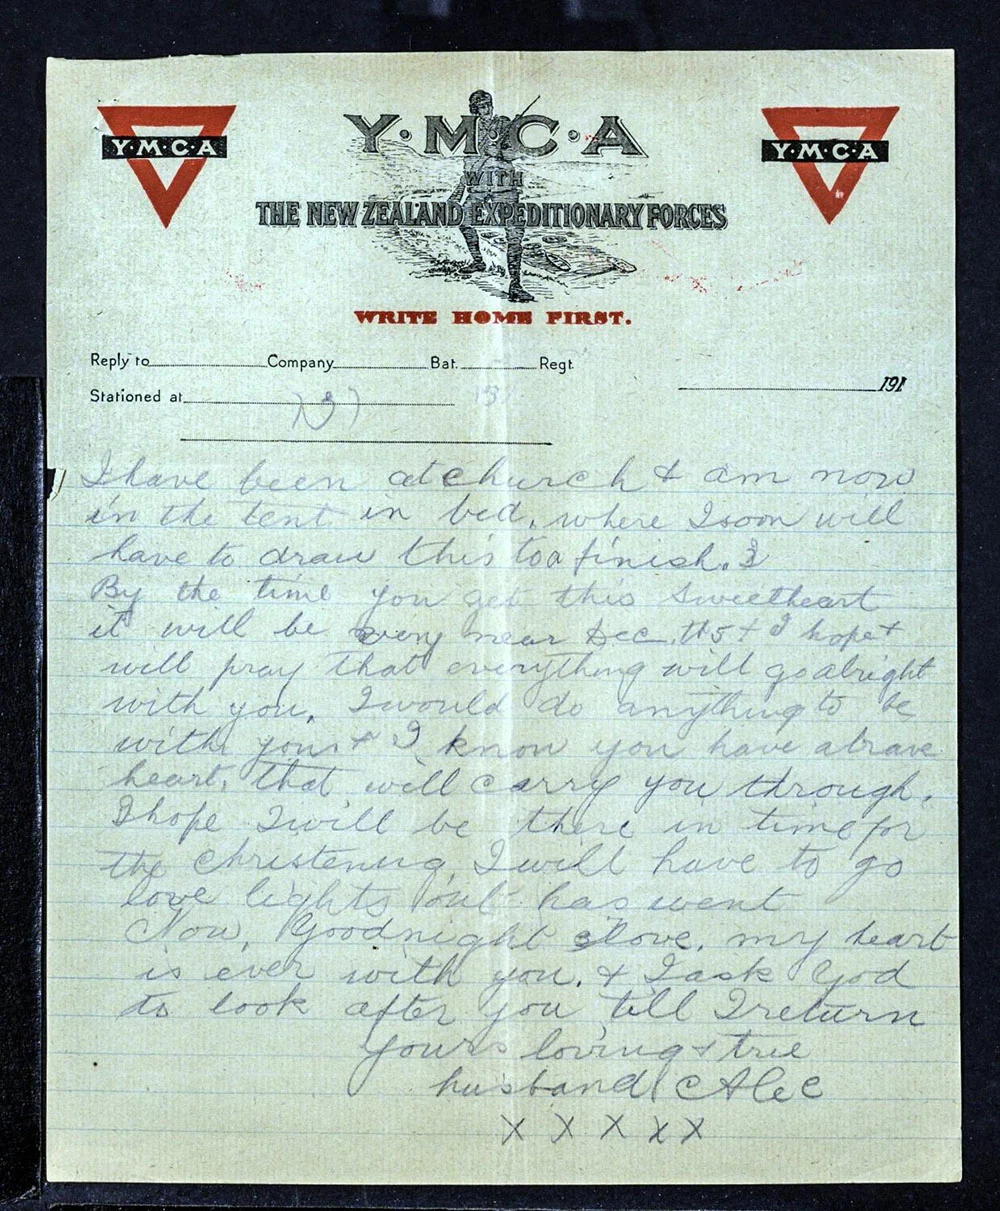 Y·M·C·A
Y·M·C·A
Y·M·C·A
WITH
THE NEW ZEALAND EXPEDITIONARY FORCES
WRITE HOME FIRST.
Reply to Company Bat. Regt
191
Stationed at
I have been at church & am now
in the tent in bed, where I soon will
have to draw this to a finish.
By the time you get this Sweetheart
it will be very near Dec & I hope &
will pray that everything will go alright
with you. I would do anything to be
with you & I know you have a brave
heart, that will carry you through.
I hope I will be there in time for
the christening, I will have to go
love lights out has went
Now, Goodnight love, my heart
is ever with you, & I ask God
to look after you till I return
yours loving & true
husband Alec
X X X X X